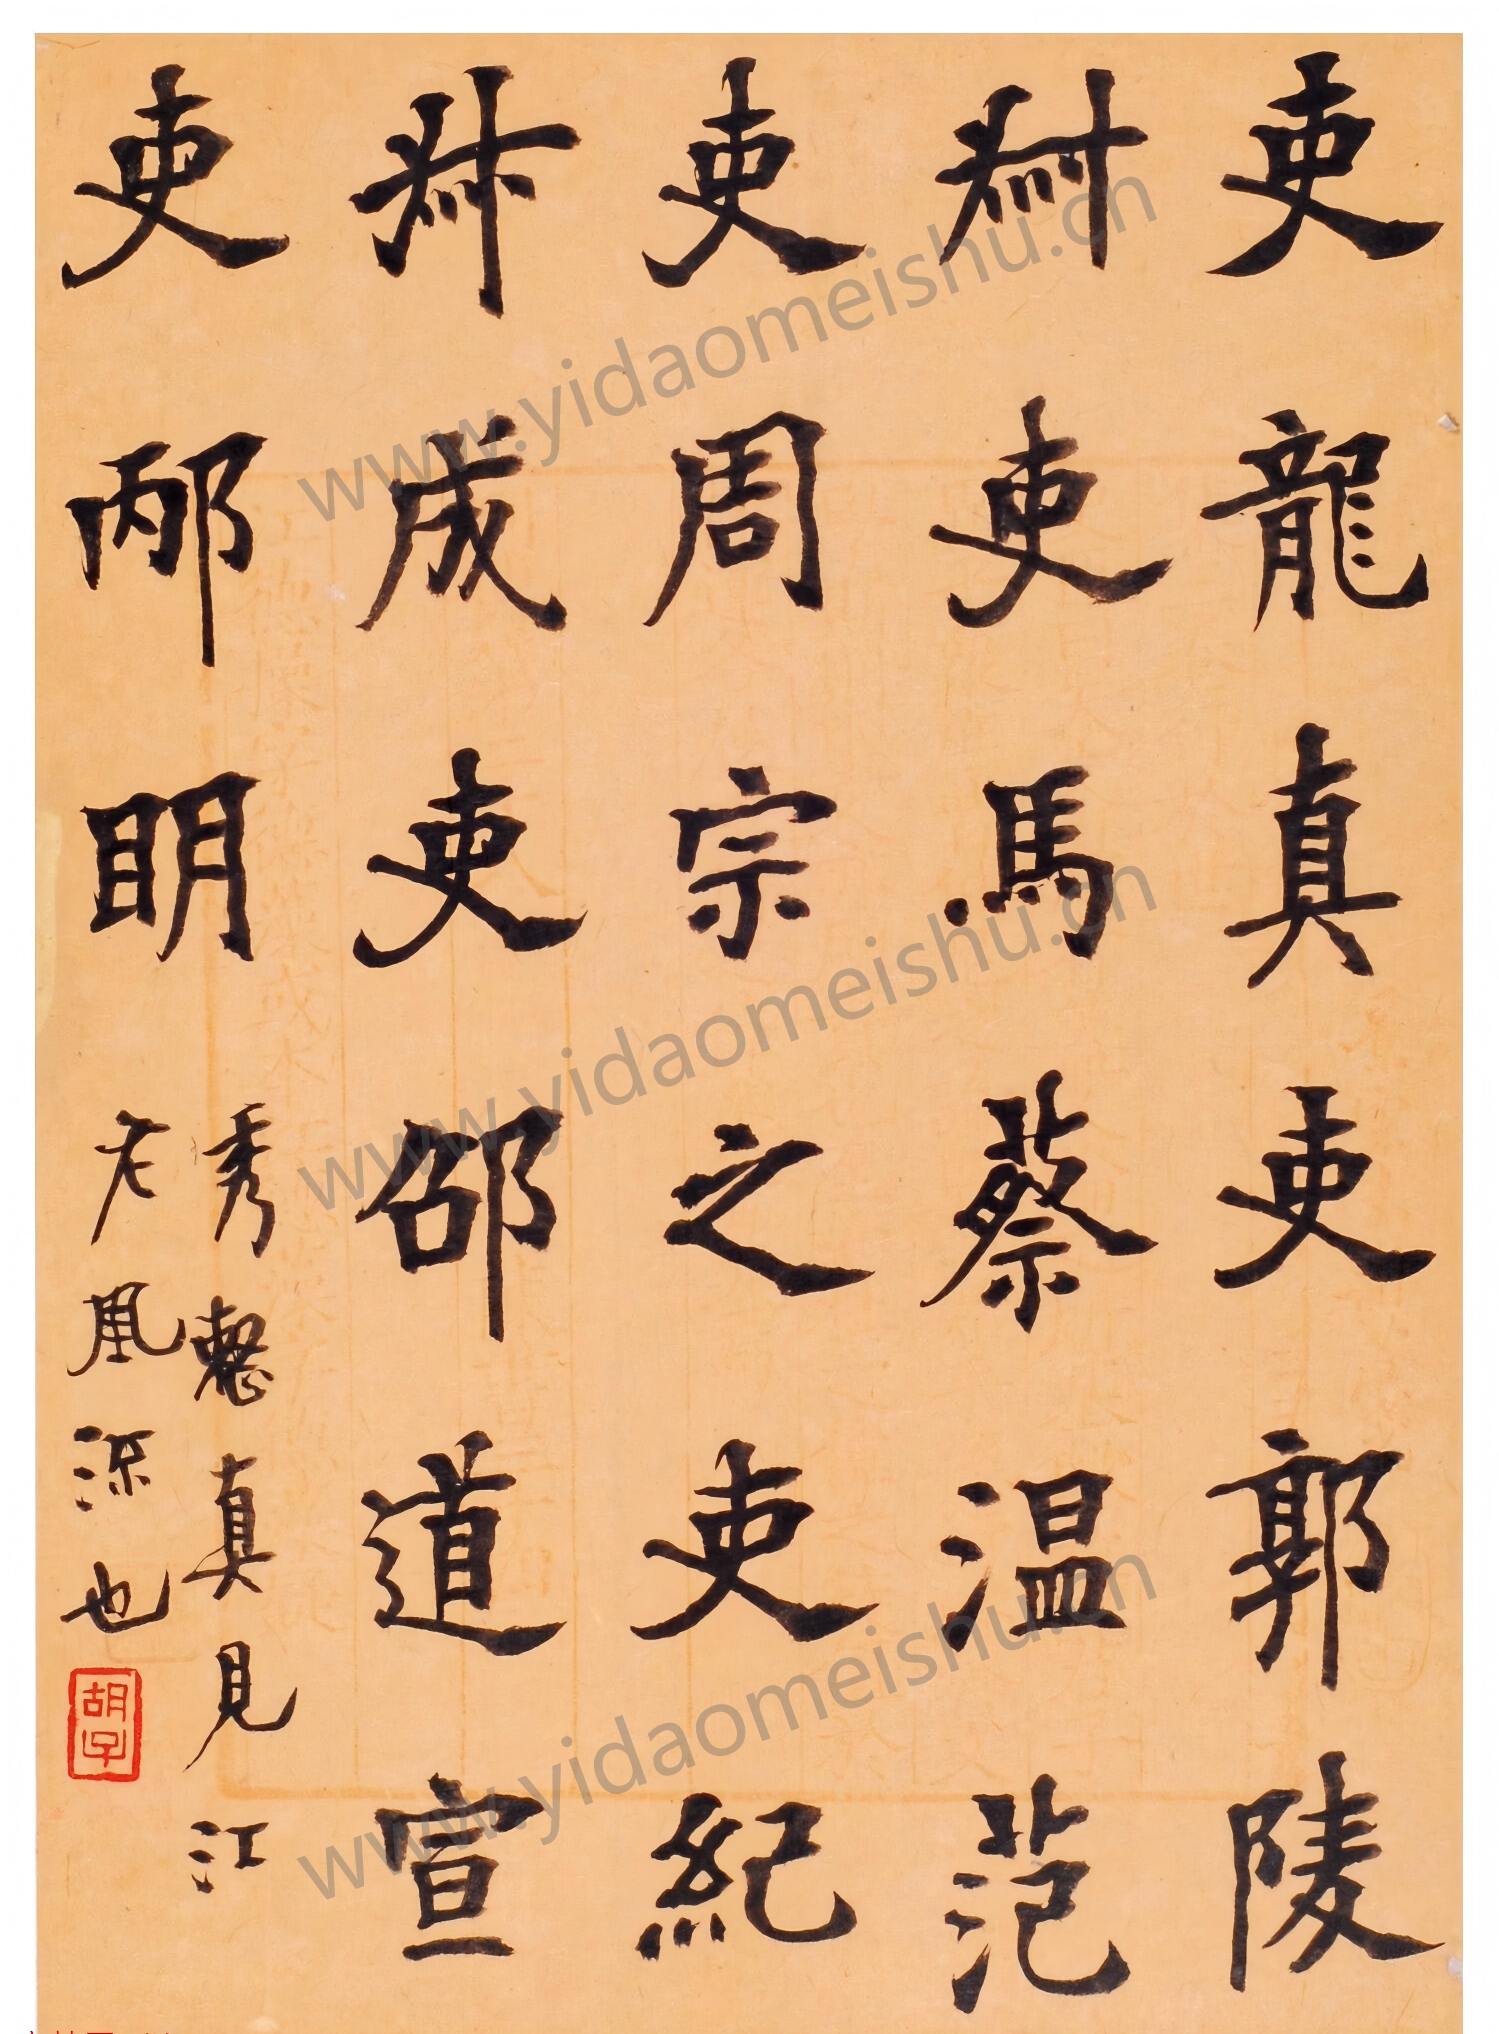 吏龍真吏郭陵
吏馬蔡温范
吏周宗之吏紀
成吏邵道宣
吏邴明
秀真見江
左風流也
胡子
www.yidaomeishu.cn
www.yidaomeishu.cn
www.yidaomeishu.cn